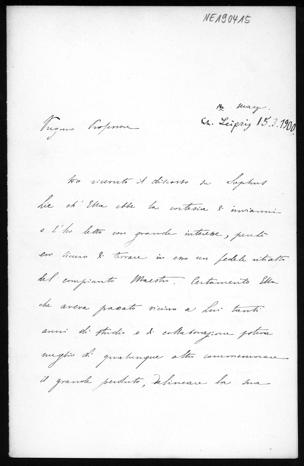 NE190415
Ca. Leipzig 15.3.1900
Pregmo Professore
Ho ricevuto il discorso su Sophus
Lie ch' Ella ebbe la cortesia di inviarmi
e l'ho letto con grande interesse, perché
ero sicuro di trovare in esso un fedele ritratto
del compianto Maestro. Certamente Ella
che aveva passato vicino a Lui tanti
anni di studio e di collaborazione poteva
meglio di qualunque altro commemorare
il grande perduto, delineare la sua